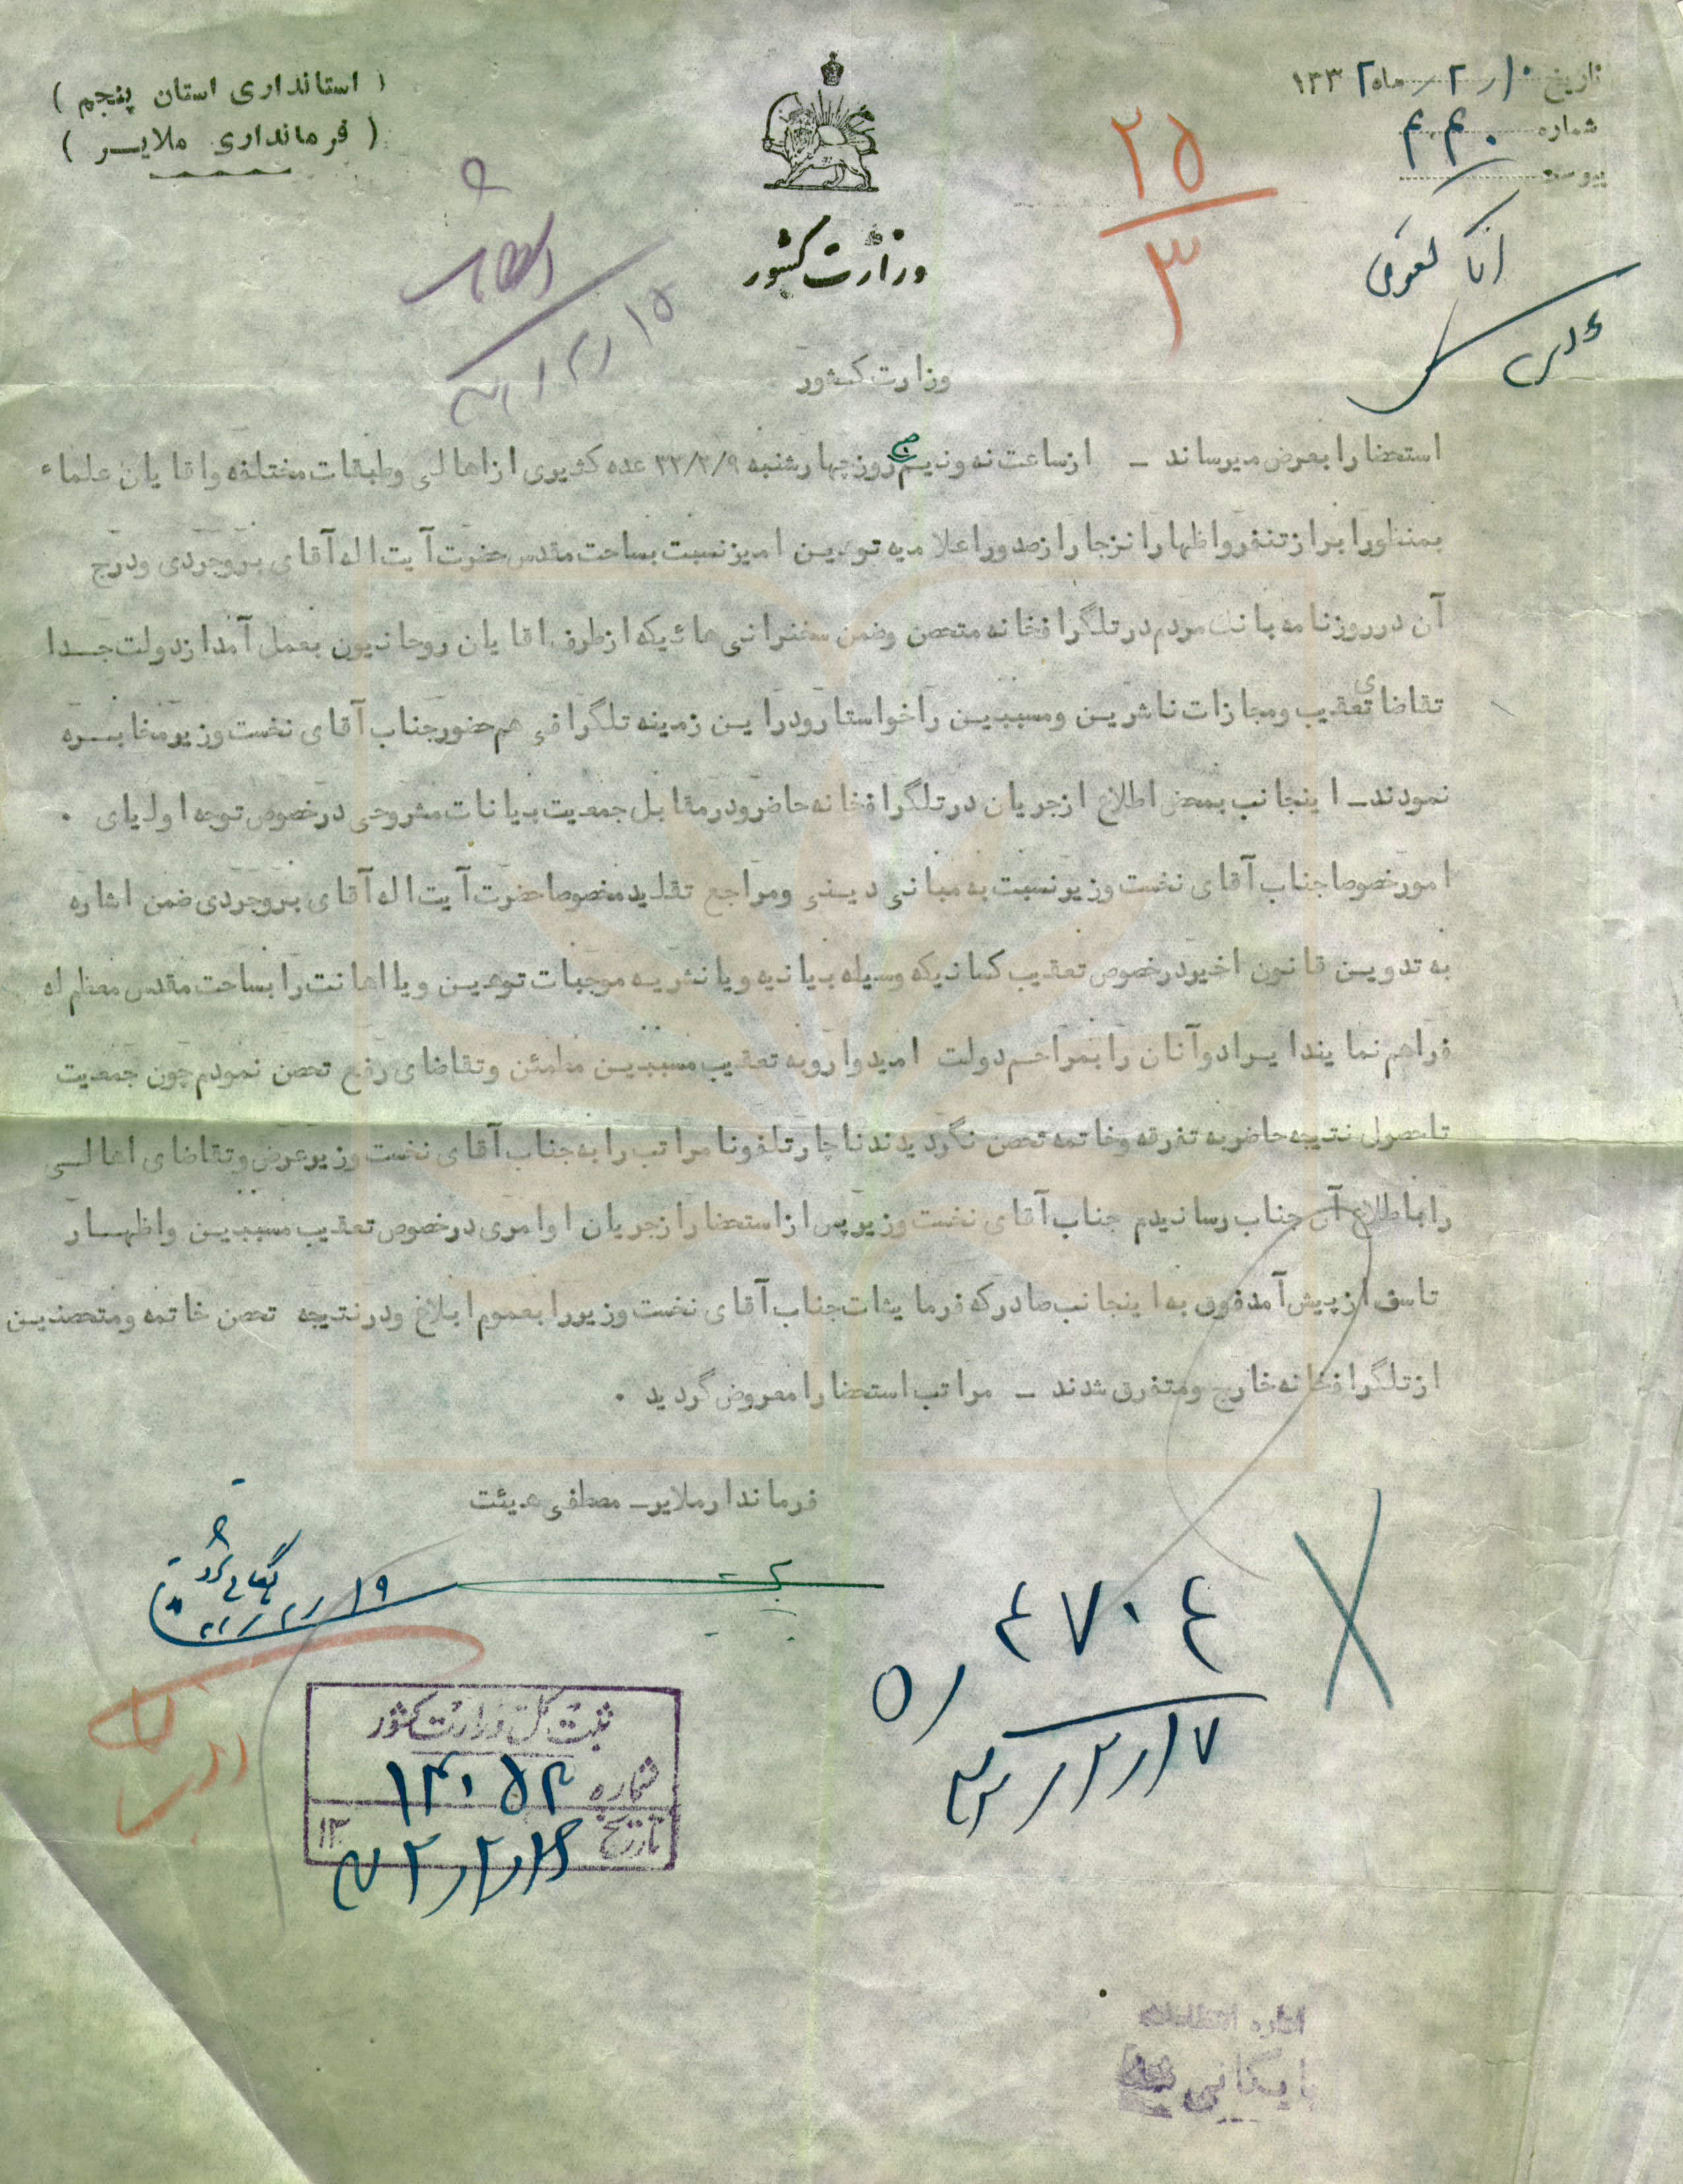 ( استانداری استان پنجم )
( فرمانداری ملایر )
تاریخ ۱۰ / ۲ / ماه ۱۳۳۲
شماره ۴۴۰
پیوست
وزارت کشور
۲۵
۳
آقای
وزارت کشور
استحضارا بعرض میرساند ـ از ساعت نه و نیم صبح روز چهارشنبه ۳۲/۲/۹ عده کثیری از اهالی و طبقات مختلفه و اقایان علماء
بمنظور ابراز تنفر و اظهار انزجار از صدور اعلامیه توهین امیز نسبت بساحت مقدس حضرت آیت اله آقای بروجردی و درج
آن در روزنامه بانک مردم در تلگرافخانه متحصن و ضمن سخنرانی هائیکه از طرف اقایان روحانیون بعمل آمد از دولت جدا
تقاضای تعقیب و مجازات ناشرین و مسببین را خواستار و در این زمینه تلگرافی هم حضور جناب آقای نخست وزیر مخابره
نمودند ـ اینجانب بمحض اطلاع از جریان در تلگرافخانه حاضر و در مقابل جمعیت بیانات مشروحی در خصوص توجه اولیای .
امور خصوصا جناب آقای نخست وزیر نسبت به مبانی دینی و مراجع تقلید مخصوصا حضرت آیت اله آقای بروجردی ضمن اشاره
به تدوین قانون اخیر در خصوص تعقیب کسانیکه وسیله بیانیه و یا نشریه موجبات توهین و یا اهانت را بساحت مقدس معظم له
فراهم نمایند ایراد و آنان را بمراحم دولت امیدوار و به تعقیب مسببین مطمئن و تقاضای رفع تحصن نمودم چون جمعیت
تا حصول نتیجه حاضر به تفرقه و خاتمه تحصن نگردیدند ناچار تلفونا مراتب را به جناب آقای نخست وزیر عرض و تقاضای اهالی
را باطلاع آن جناب رسانیدم جناب آقای نخست وزیر پس از استحضار از جریان اوامری در خصوص تعقیب مسببین و اظهار
تاسف از پیش آمد فوق به اینجانب صادر که فرمایشات جناب آقای نخست وزیر را بعموم ابلاغ و در نتیجه تحصن خاتمه و متحصنین
از تلگرافخانه خارج و متفرق شدند ـ مراتب استحضارا معروض گردید .
فرماندار ملایر ـ مصطفی هیئت
۱۹ / ۲ / ۳۲
۴۷۰۴ / ۵
۱۷ / ۲ / ۳۲
ثبت کل وزارت کشور
شماره ۱۴۰۵۴
تاریخ ۱۶ / ۲ / ۳۲ ۱۳
اداره انتظامات
بایگانی